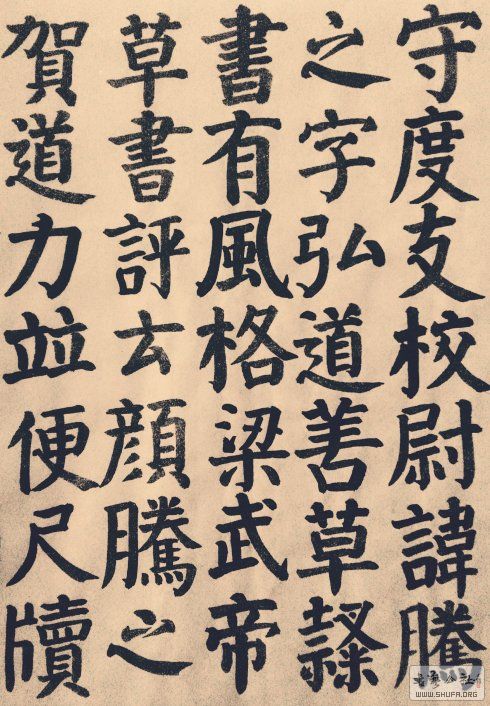 守度支校尉諱騰
之字弘道善草隸
書有風格梁武帝
草書評云顏騰之
賀道力並便尺牘
WWW.SHUFA.ORG